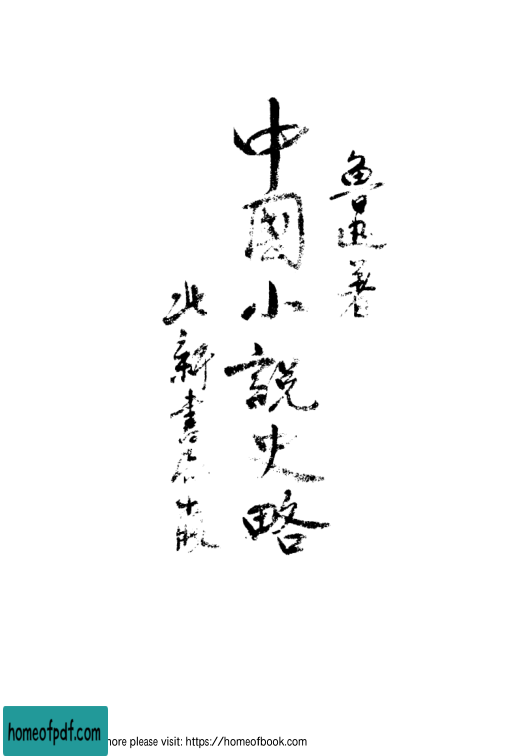 魯迅著
中國小說史略
北新書店出版
homeofpdf.com
more please visit: https://homeofbook.com